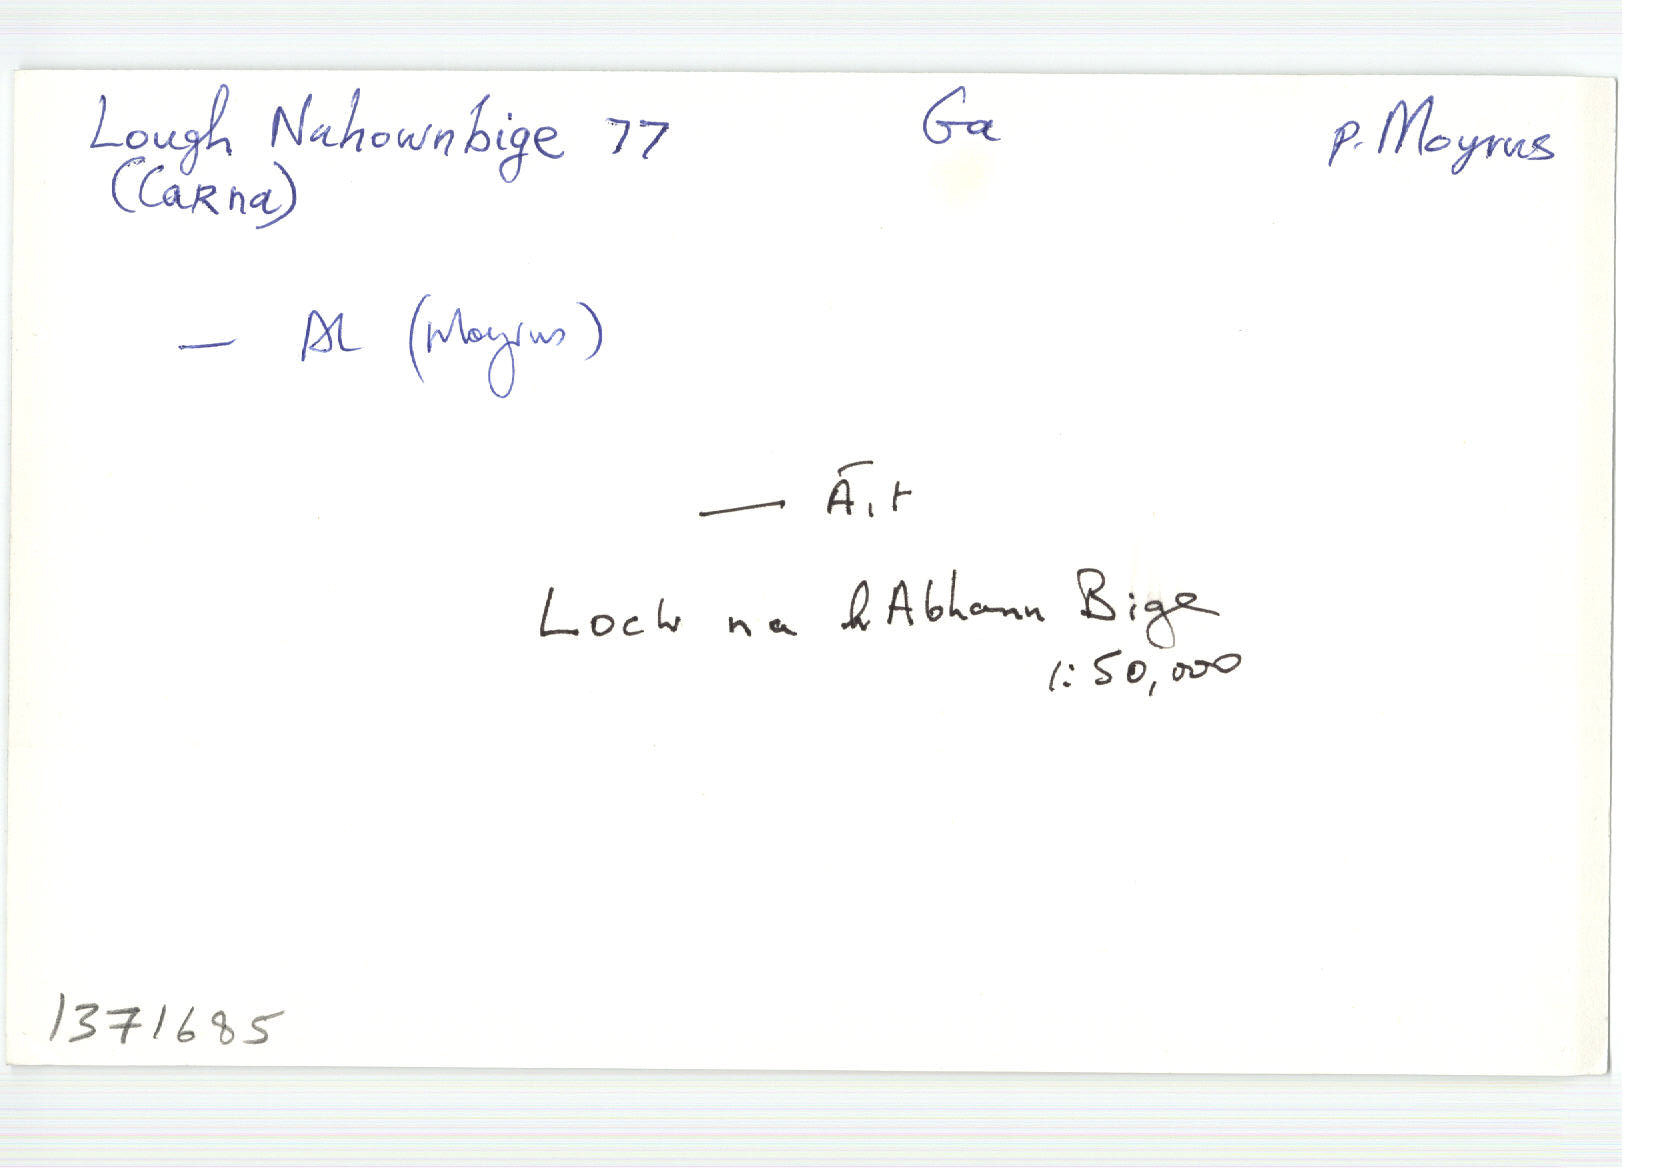 Lough Nahownbige 77 Ga p. Moyrus
(Carna)
— AL (Moyrus)
— Áit
Loch na hAbhann Bige
1:50,000
1371685